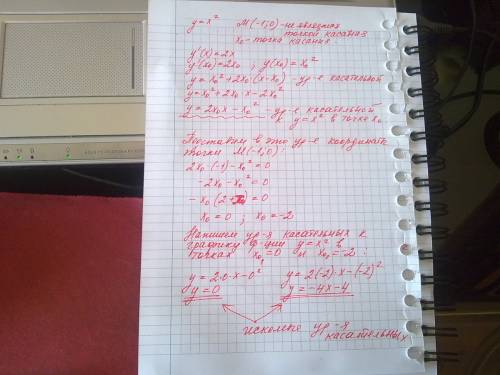 y = x² М(-1;0) - не является
точкой касания
x₀ - точка касания
y'(x) = 2x
y'(x₀) = 2x₀ ; y(x₀) = x₀²
y = x₀² + 2x₀(x - x₀) - ур-е касательной
y = x₀² + 2x₀x - 2x₀²
y = 2x₀x - x₀² - ур-е касательной
к y = x² в точке x₀
Подставим в это ур-е координаты
точки М(-1;0):
2x₀·(-1) - x₀² = 0
-2x₀ - x₀² = 0
-x₀(2+x₀) = 0
x₀ = 0 ; x₀ = -2
Напишем ур-я касательных к
графику ф-ции y = x² в
точках x₀₁ = 0 и x₀₂ = -2 :
y = 2·0·x - 0² y = 2(-2)·x - (-2)²
y = 0 y = -4x - 4
искомые ур-я
касательных